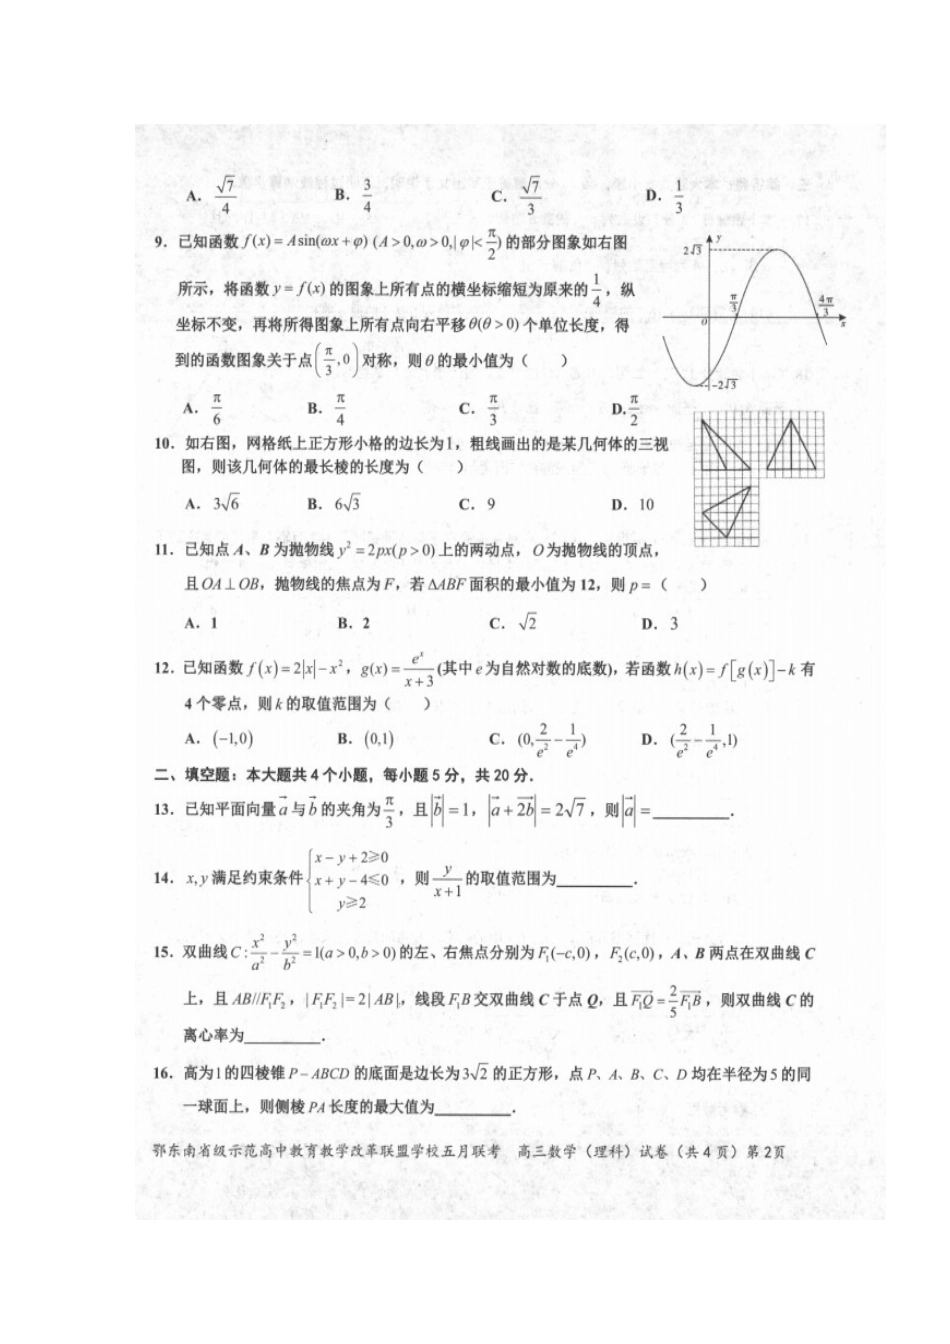 A. √7/4 B. 3/4 C. √7/3 D. 1/3
9. 已知函数 f(x) = A sin(ωx + φ) (A > 0, ω > 0, |φ| < π/2) 的部分图象如右图
所示，将函数 y = f(x) 的图象上所有点的横坐标缩短为原来的 1/4，纵
坐标不变，再将所得图象上所有点向右平移 θ(θ > 0) 个单位长度，得
到的函数图象关于点 (π/3, 0) 对称，则 θ 的最小值为（ ）
y
2√3
π/3
4π/3
o
x
-2√3
A. π/6 B. π/4 C. π/3 D. π/2
10. 如右图，网格纸上正方形小格的边长为1，粗线画出的是某几何体的三视
图，则该几何体的最长棱的长度为（ ）
A. 3√6 B. 6√3 C. 9 D. 10
11. 已知点 A、B 为抛物线 y² = 2px(p > 0) 上的两动点，O 为抛物线的顶点，
且 OA⊥OB，抛物线的焦点为 F，若 ΔABF 面积的最小值为 12，则 p =（ ）
A. 1 B. 2 C. √2 D. 3
12. 已知函数 f(x) = 2|x| − x²，g(x) = e^x/(x+3) (其中 e 为自然对数的底数)，若函数 h(x) = f[g(x)] − k 有
4 个零点，则 k 的取值范围为（ ）
A. (−1,0) B. (0,1) C. (0, 2/e² − 1/e⁴) D. (2/e² − 1/e⁴, 1)
二、填空题：本大题共 4 个小题，每小题 5 分，共 20 分．
13. 已知平面向量 a⃗ 与 b⃗ 的夹角为 π/3，且 |b⃗| = 1，|a⃗ + 2b⃗| = 2√7，则 |a⃗| = ________．
14. x, y 满足约束条件 { x − y + 2 ⩾ 0
x + y − 4 ⩽ 0
y ⩾ 2 ，则 y/(x+1) 的取值范围为________．
15. 双曲线 C: x²/a² − y²/b² = 1(a > 0, b > 0) 的左、右焦点分别为 F₁(−c,0)，F₂(c,0)，A、B 两点在双曲线 C
上，且 AB//F₁F₂，|F₁F₂| = 2|AB|，线段 F₁B 交双曲线 C 于点 Q，且 F₁Q = 2/5 F₁B，则双曲线 C 的
离心率为________．
16. 高为1的四棱锥 P − ABCD 的底面是边长为 3√2 的正方形，点 P、A、B、C、D 均在半径为 5 的同
一球面上，则侧棱 PA 长度的最大值为________．
鄂东南省级示范高中教育教学改革联盟学校五月联考 高三数学（理科）试卷（共 4 页）第 2页